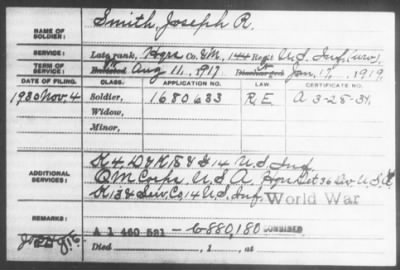 NAME OF SOLDIER: Smith, Joseph R.
SERVICE: Late rank, Hqrs Co. & M., 144 Regt U.S. Inf.
TERM OF SERVICE: Enlisted Aug 11, 1917 Discharged Jan. 19, 1919
DATE OF FILING. CLASS. APPLICATION NO. LAW. CERTIFICATE NO.
1930 Nov. 4 Soldier, 1680633 R.E. A 3-28-31.
Widow,
Minor,
ADDITIONAL SERVICES:
K 14 U.S. Inf.
QM Corps U.S.A. Hqrs Det 36 Div U.S.
K 13 & Serv. Co 14 U.S. Inf. World War
REMARKS: A 1 460 581 - C 880,180
Died , 1 , at